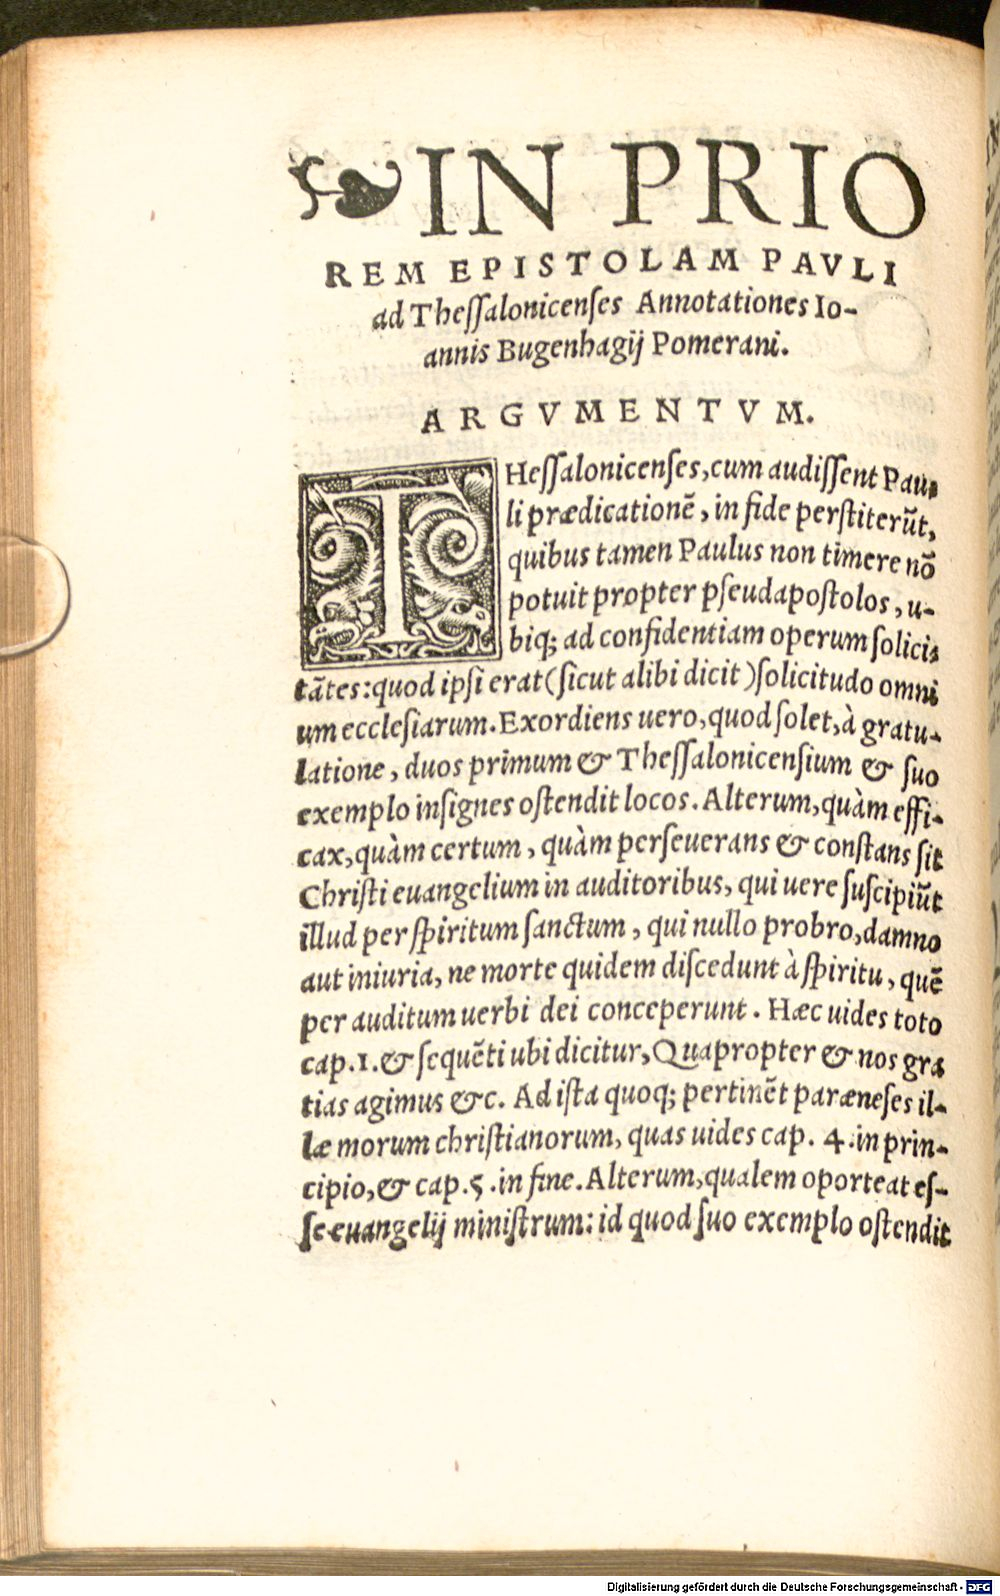 ❧IN PRIO
REM EPISTOLAM PAVLI
ad Thessalonicenses Annotationes Io-
annis Bugenhagij Pomerani.
ARGVMENTVM.
THessalonicenses, cum audissent Pau-
li prædicationē, in fide perstiterūt,
quibus tamen Paulus non timere nō
potuit propter pseudapostolos, u-
biq; ad confidentiam operum solici-
tātes: quod ipsi erat (sicut alibi dicit) solicitudo omni
um ecclesiarum. Exordiens uero, quod solet, à gratu-
latione, duos primum & Thessalonicensium & suo
exemplo insignes ostendit locos. Alterum, quàm effi-
cax, quàm certum, quàm perseuerans & constans sit
Christi euangelium in auditoribus, qui uere suscipiūt
illud per spiritum sanctum, qui nullo probro, damno
aut iniuria, ne morte quidem discedunt à spiritu, quē
per auditum uerbi dei conceperunt. Hæc uides toto
cap. 1. & sequēti ubi dicitur, Quapropter & nos gra
tias agimus &c. Ad ista quoq; pertinēt paræneses il-
læ morum christianorum, quas uides cap. 4. in prin-
cipio, & cap. 5. in fine. Alterum, qualem oporteat es-
se euangelij ministrum: id quod suo exemplo ostendit
Digitalisierung gefördert durch die Deutsche Forschungsgemeinschaft - DFG